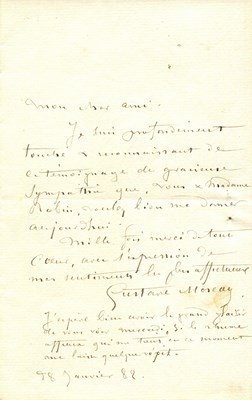 Mon cher ami.
Je suis profondément
touché & reconnaissant de
ce témoignage de gracieuse
Sympathie que, vous & Madame
voulez bien me donner
aujourd'hui.
Mille fois merci de tout
Cœur, avec l'expression de
mes sentiments les plus affectueux
Gustave Moreau
J'espère bien avoir le grand plaisir
de vous voir mercredi, si le rhume
affreux qui me tient en ce moment
me laisse quelque répit.
28 Janvier 88.